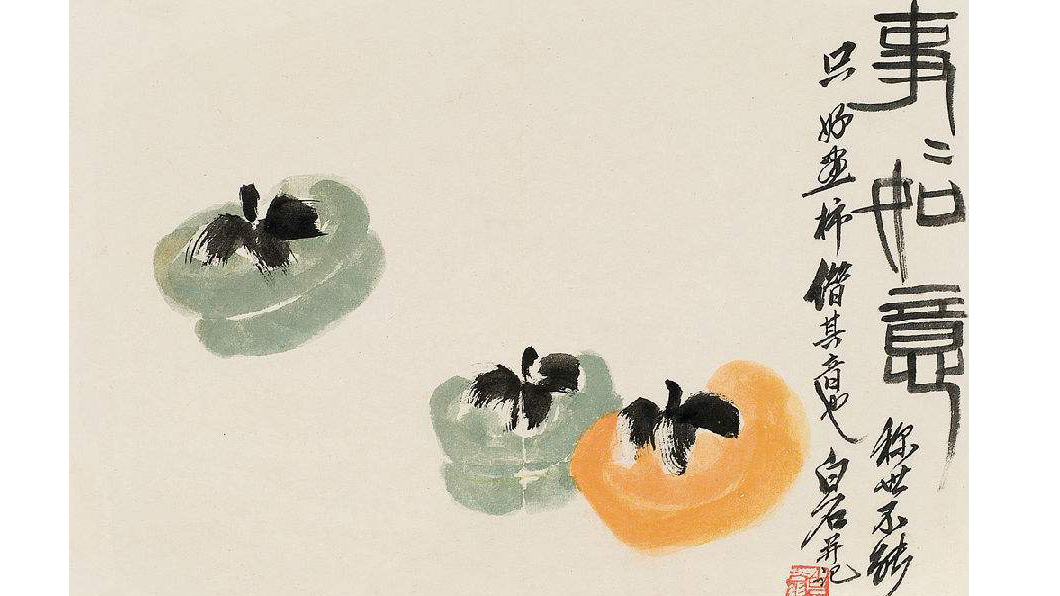 事〻如意 称世不能
只好畫柿借其音也 白石并記